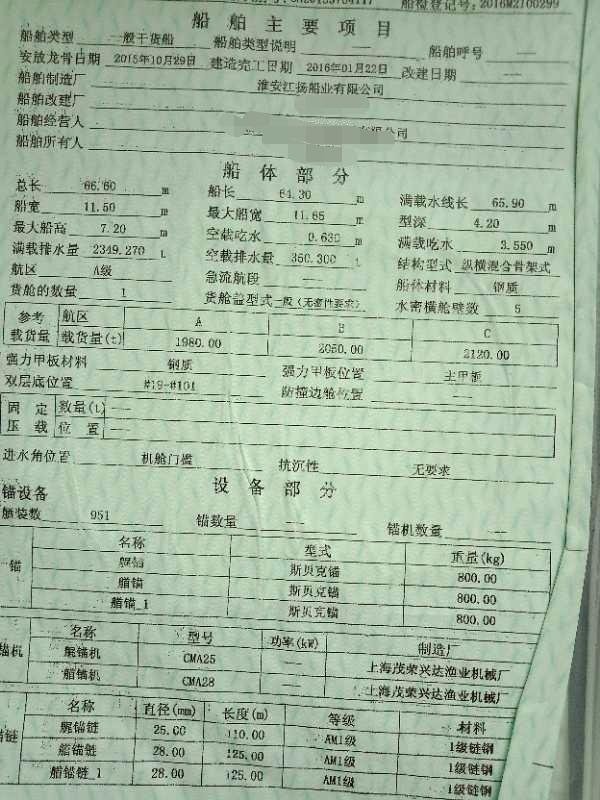 船检登记号: 2016M2100299
船舶主要项目
船舶类型 一般干货船 船舶类型说明 —— 船舶呼号 ——
安放龙骨日期 2015年10月29日 建造完工日期 2016年01月22日 改建日期 ——
船舶制造厂 淮安江扬船业有限公司
船舶改建厂
船舶经营人 有限公司
船舶所有人
船体部分
总长 66.60 m 船长 64.30 m 满载水线长 65.90 m
船宽 11.50 m 最大船宽 11.65 m 型深 4.20 m
最大船高 7.20 m 空载吃水 0.630 m 满载吃水 3.550 m
满载排水量 2349.270 t 空载排水量 350.300 t 结构型式 纵横混合骨架式
航区 A级 急流航段 —— 船体材料 钢质
货舱的数量 1 货舱盖型式 一般(无密性要求) 水密横舱壁数 5
参考载货量 航区 A B C
载货量(t) 1980.00 2050.00 2120.00
强力甲板材料 钢质 强力甲板位置 主甲板
双层底位置 #19-#101 防撞边舱位置 ——
固定压载 数量(t) ——
位置 ——
进水角位置 机舱门槛 抗沉性 无要求
设备部分
锚设备
舾装数 951 锚数量 —— 锚机数量 ——
锚 名称 型式 重量(kg)
艉锚 斯贝克锚 800.00
艏锚 斯贝克锚 800.00
艏锚_1 斯贝克锚 800.00
锚机 名称 型号 功率(kW) 制造厂
艉锚机 CMA25 —— 上海茂荣兴达渔业机械厂
艏锚机 CMA28 —— 上海茂荣兴达渔业机械厂
锚链 名称 直径(mm) 长度(m) 等级 材料
艉锚链 25.00 110.00 AM1级 1级链钢
艏锚链 28.00 125.00 AM1级 1级链钢
艏锚链_1 28.00 125.00 AM1级 1级链钢